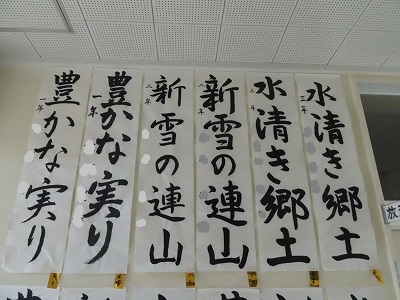 水清き郷土
三年
水清き郷土
三年
新雪の連山
二年
新雪の連山
二年
豊かな実り
一年
豊かな実り
一年
放